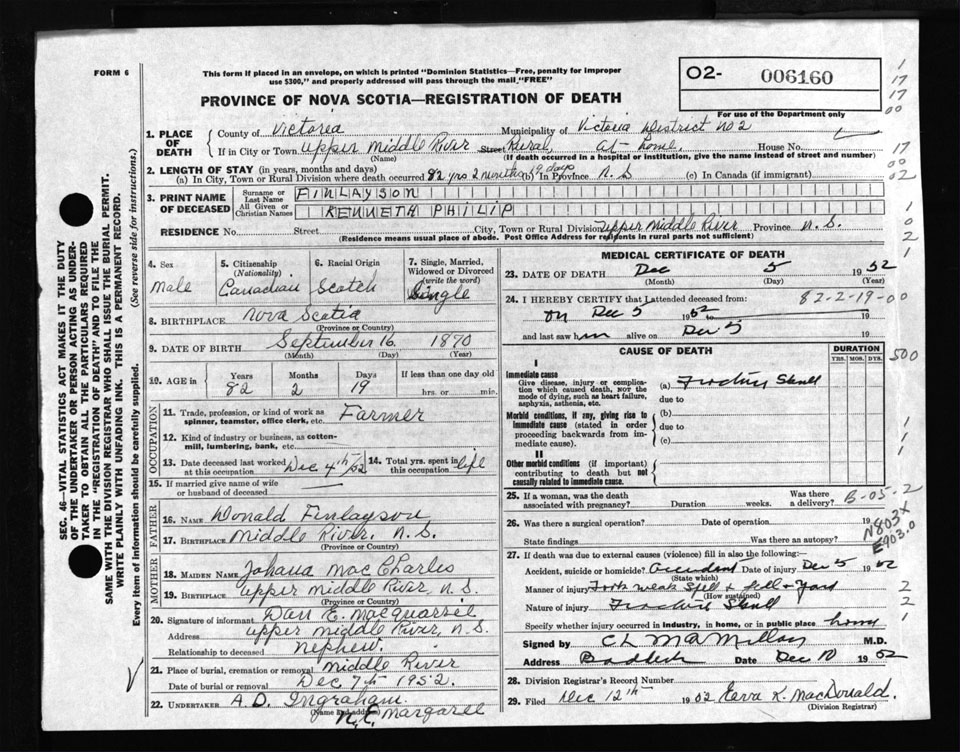 FORM 6
This form if placed in an envelope, on which is printed "Dominion Statistics—Free, penalty for improper
use $300," and properly addressed will pass through the mail "FREE"
O2- 006160
For use of the Department only
PROVINCE OF NOVA SCOTIA—REGISTRATION OF DEATH
1. PLACE OF DEATH
County of Victoria Municipality of Victoria District No 2
If in City or Town Upper Middle River Street Rural, at home, House No.
(Name) (If death occurred in a hospital or institution, give the name instead of street and number)
2. LENGTH OF STAY (in years, months and days)
(a) In City, Town or Rural Division where death occurred 82 yrs 2 months 19 days (b) In Province N. S (c) In Canada (if immigrant)
3. PRINT NAME OF DECEASED
Surname or Last Name FINLAYSON
All Given or Christian Names KENNETH PHILIP
RESIDENCE No. Street City, Town or Rural Division Upper Middle River Province N. S.
(Residence means usual place of abode. Post Office Address for residents in rural parts not sufficient)
4. Sex Male
5. Citizenship (Nationality) Canadian
6. Racial Origin Scotch
7. Single, Married, Widowed or Divorced (write the word) Single
8. BIRTHPLACE Nova Scotia
(Province or Country)
9. DATE OF BIRTH September 16 1870
(Month) (Day) (Year)
10. AGE in Years 82 Months 2 Days 19 If less than one day old hrs. or min.
OCCUPATION
11. Trade, profession, or kind of work as spinner, teamster, office clerk, etc. Farmer
12. Kind of industry or business, as cotton-mill, lumbering, bank, etc.
13. Date deceased last worked at this occupation Dec 4th/52
14. Total yrs. spent in this occupation life
15. If married give name of wife or husband of deceased
FATHER
16. NAME Donald Finlayson
17. BIRTHPLACE Middle River. N. S.
(Province or Country)
MOTHER
18. MAIDEN NAME Johana MacCharles
19. BIRTHPLACE Upper Middle River, N. S.
(Province or Country)
20. Signature of informant Dan E. MacQuarrie
Address Upper Middle River, N. S.
Relationship to deceased Nephew.
21. Place of burial, cremation or removal Middle River
Date of burial or removal Dec 7th 1952.
22. UNDERTAKER A. D. Ingraham.
(Name and address) N. E. Margaree
MEDICAL CERTIFICATE OF DEATH
23. DATE OF DEATH Dec 5 1952
(Month) (Day) (Year)
24. I HEREBY CERTIFY that I attended deceased from: 82-2-19-00
on Dec 5 1952 to 19
and last saw him alive on Dec 5 19
CAUSE OF DEATH
DURATION
YRS. MOS. DYS.
I
Immediate cause
Give disease, injury or complication which caused death, NOT the mode of dying, such as heart failure, asphyxia, asthenia, etc.
(a) Fracture Skull
due to
Morbid conditions, if any, giving rise to immediate cause (stated in order proceeding backwards from immediate cause).
(b)
due to
(c)
II
Other morbid conditions (if important) contributing to death but not causally related to immediate cause.
25. If a woman, was the death associated with pregnancy? Duration weeks. Was there a delivery?
B-05-2
26. Was there a surgical operation? Date of operation 19
State findings Was there an autopsy?
N803X
E903.0
27. If death was due to external causes (violence) fill in also the following:—
Accident, suicide or homicide? Accident Date of injury Dec 5 1952
(State which)
Manner of injury Took weak spell & fell in yard
(How sustained)
Nature of injury Fracture Skull
Specify whether injury occurred in industry, in home, or in public place home
Signed by C L MacMillan M.D.
Address Baddeck Date Dec 10 1952
28. Division Registrar's Record Number
29. Filed Dec 12th 1952 K. MacDonald.
(Division Registrar)
SEC. 46—VITAL STATISTICS ACT MAKES IT THE DUTY
OF THE UNDERTAKER OR PERSON ACTING AS UNDER-
TAKER TO OBTAIN ALL THE PARTICULARS REQUIRED
IN THE "REGISTRATION OF DEATH" AND TO FILE THE
SAME WITH THE DIVISION REGISTRAR WHO SHALL ISSUE THE BURIAL PERMIT.
WRITE PLAINLY WITH UNFADING INK. THIS IS A PERMANENT RECORD.
Every item of information should be carefully supplied. (See reverse side for instructions.)
1
17
17
00
17
00
02
1
0
2
1
500
1
1
1
2
2
1